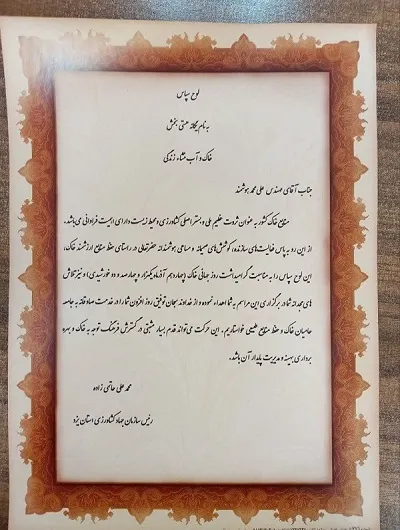 لوح سپاس
به نام یگانه هستی بخش
خاک و آب منشاء زندگی
جناب آقای مهندس علی محمد هوشمند
منابع خاک کشور به عنوان ثروت عظیم ملی و بستر اصلی کشاورزی و محیط زیست دارای اهمیت فراوانی می‌باشد.
از این رو به پاس فعالیت‌های سازنده، کوشش‌های صمیمانه و مساعی هوشمندانه حضرتعالی در راستای حفظ منابع ارزشمند خاک،
این لوح سپاس را به مناسبت گرامیداشت روز جهانی خاک (چهاردهم آذرماه یکهزار و چهارصد و دو خورشیدی) و نیز تلاش
های مجدانه شما در برگزاری این مراسم به شما اهداء نموده و از خداوند سبحان توفیق روز افزون شما را در خدمت صادقانه به جامعه
حامیان خاک و حفظ منابع طبیعی خواستاریم. این حرکت می‌تواند قدم بسیار مثبتی در گسترش فرهنگ توجه به خاک و بهره
برداری بهینه و مدیریت پایدار آن باشد.
محمد علی حاتمی زاده
رئیس سازمان جهاد کشاورزی استان یزد